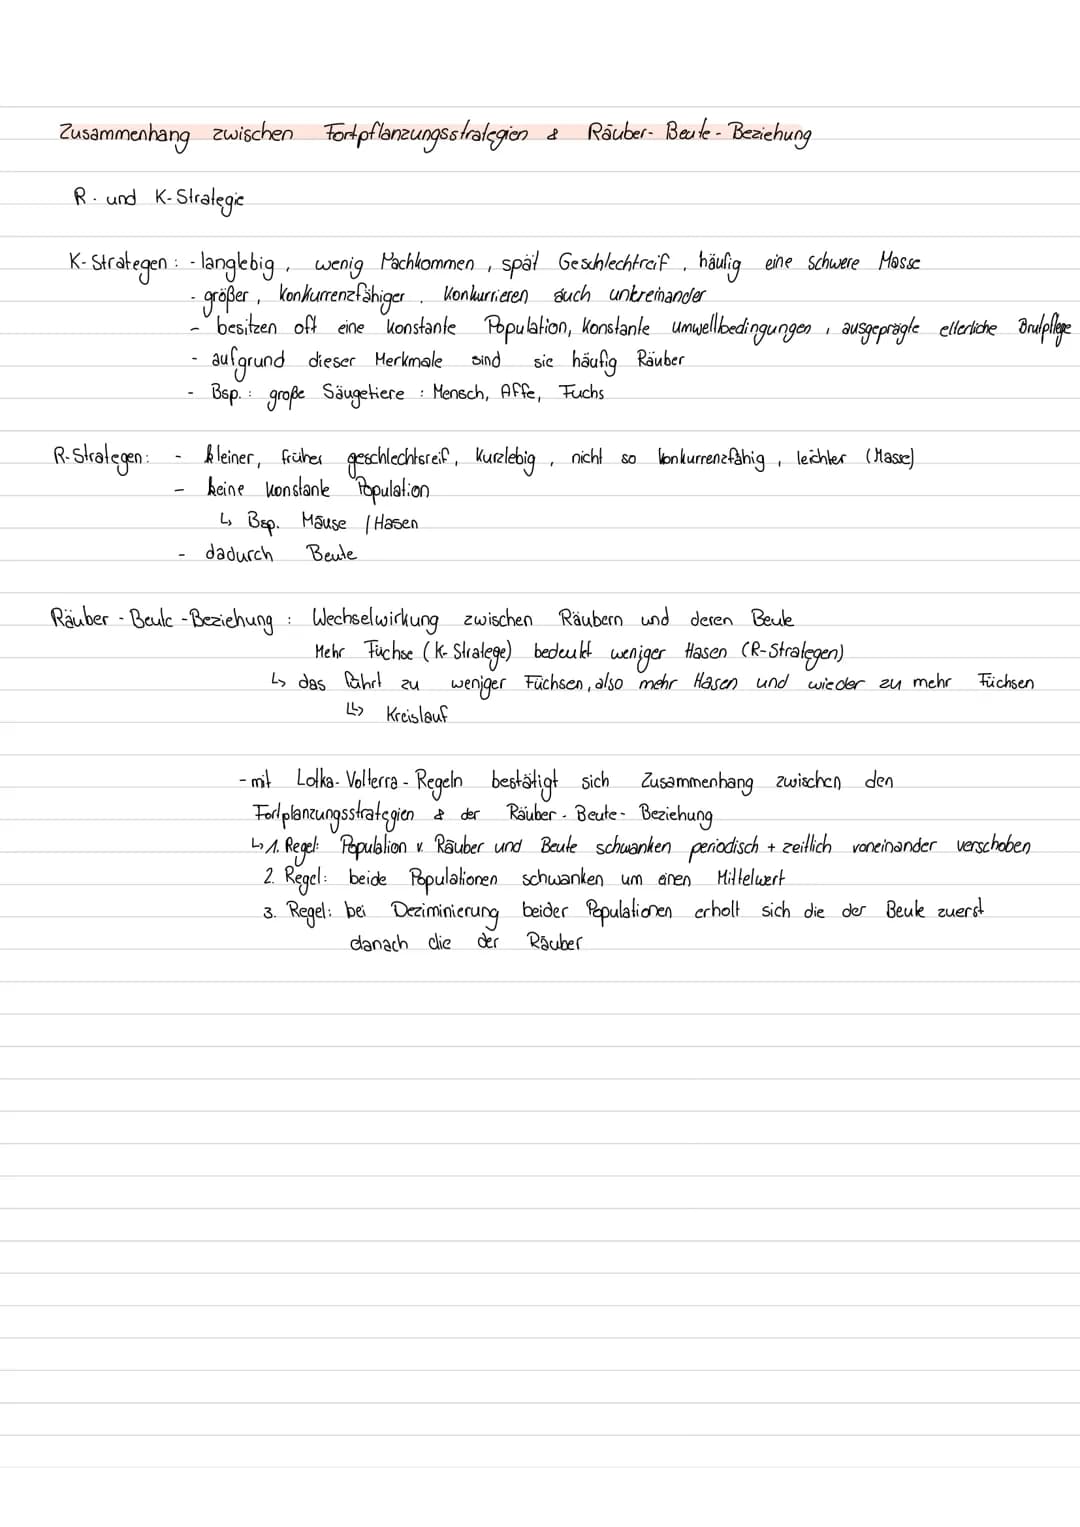 Zusammenhang zwischen Fortpflanzungsstrategien & Räuber-Beute-Beziehung
R- und K-Strategie
K-Strategen: - langlebig, wenig Nachkommen, spät Geschlechtreif, häufig eine schwere Masse
- größer, konkurrenzfähiger, konkurrieren auch untereinander
- besitzen oft eine konstante Population, konstante umweltbedingungen, ausgeprägte elterliche Brutpflege
- aufgrund dieser Merkmale sind sie häufig Räuber
- Bsp.: große Säugetiere: Mensch, Affe, Fuchs
R-Strategen: - kleiner, früher geschlechtsreif, kurzlebig, nicht so konkurrenzfähig, leichter (Masse)
- keine konstante Population
↳ Bsp. Mäuse / Hasen
- dadurch Beute
Räuber-Beute-Beziehung: Wechselwirkung zwischen Räubern und deren Beute
Mehr Füchse (K-Stratege) bedeutet weniger Hasen (R-Strategen)
↳ das führt zu weniger Füchsen, also mehr Hasen und wieder zu mehr Füchsen
↳ Kreislauf
- mit Lotka-Volterra-Regeln bestätigt sich Zusammenhang zwischen den
Fortplanzungsstrategien & der Räuber-Beute-Beziehung
↳ 1. Regel: Population v. Räuber und Beute schwanken periodisch + zeitlich voneinander verschoben
2. Regel: beide Populationen schwanken um einen Mittelwert
3. Regel: bei Deziminierung beider Populationen erholt sich die der Beute zuerst
danach die der Räuber